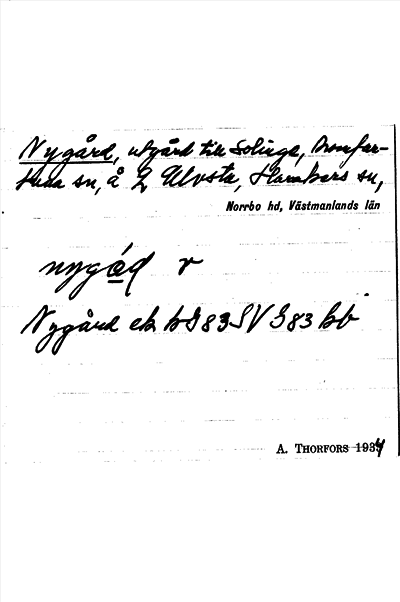 Nygård, utgård till Solinge, Romfar-
tuna sn, å 2 Ulvsta, Haraker sn,
Norrbo hd, Västmanlands län
nygård v
Nygård ek b S 83 SV S 83 bb
A. THORFORS 1934